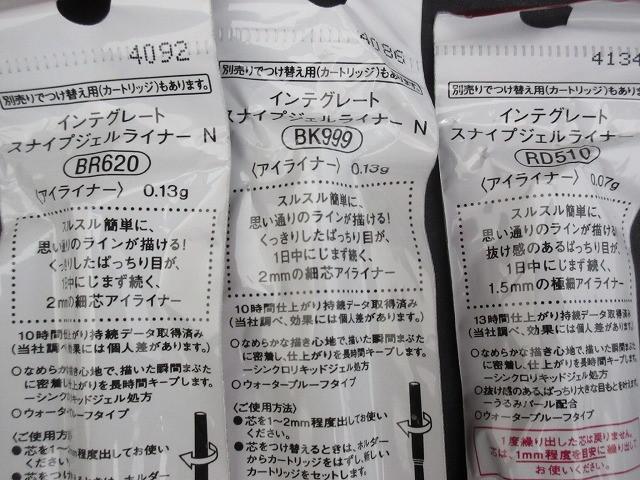 4092
別売りでつけ替え用(カートリッジ)もあります。
インテグレート
スナイプジェルライナー N
BR620
〈アイライナー〉 0.13g
スルスル簡単に、
思い通りのラインが描ける!
くっきりしたぱっちり目が、
1日中にじまず続く、
2mmの細芯アイライナー
10時間仕上がり持続データ取得済み
(当社調べ、効果には個人差があります。)
○なめらかな描き心地で、描いた瞬間まぶた
に密着し、仕上がりを長時間キープします。
ーシンクロリキッドジェル処方
○ウォータープルーフタイプ
〈ご使用方法〉
●芯を1〜2mm程度出してお使い
ください。
●芯をつけ替えるときは、ホルダー
4086
別売りでつけ替え用(カートリッジ)もあります。
インテグレート
スナイプジェルライナー N
BK999
〈アイライナー〉 0.13g
スルスル簡単に、
思い通りのラインが描ける!
くっきりしたぱっちり目が、
1日中にじまず続く、
2mmの細芯アイライナー
10時間仕上がり持続データ取得済み
(当社調べ、効果には個人差があります。)
○なめらかな描き心地で、描いた瞬間まぶた
に密着し、仕上がりを長時間キープします。
ーシンクロリキッドジェル処方
○ウォータープルーフタイプ
〈ご使用方法〉
●芯を1〜2mm程度出してお使い
ください。
●芯をつけ替えるときは、ホルダー
からカートリッジをはずし、新しい
カートリッジをセットします。
4134
別売りでつけ替え用(カートリッジ)もありま
インテグレート
スナイプジェルライナー
RD510
〈アイライナー〉 0.07g
スルスル簡単に、
思い通りのラインが描ける!
抜け感のあるぱっちり目が、
1日中にじまず続く、
1.5mmの極細アイライナー
13時間仕上がり持続データ取得済み
(当社調べ、効果には個人差があります。)
○なめらかな描き心地で、描いた瞬間まぶた
に密着し、仕上がりを長時間キープします。
ーシンクロリキッドジェル処方
○抜け感のある、ぱっちり大きな目もとを叶える
ーうるみパール配合
○ウォータープルーフタイプ
1度繰り出した芯は戻りません。
芯は、1mm程度を目安に繰り出して
お使いください。